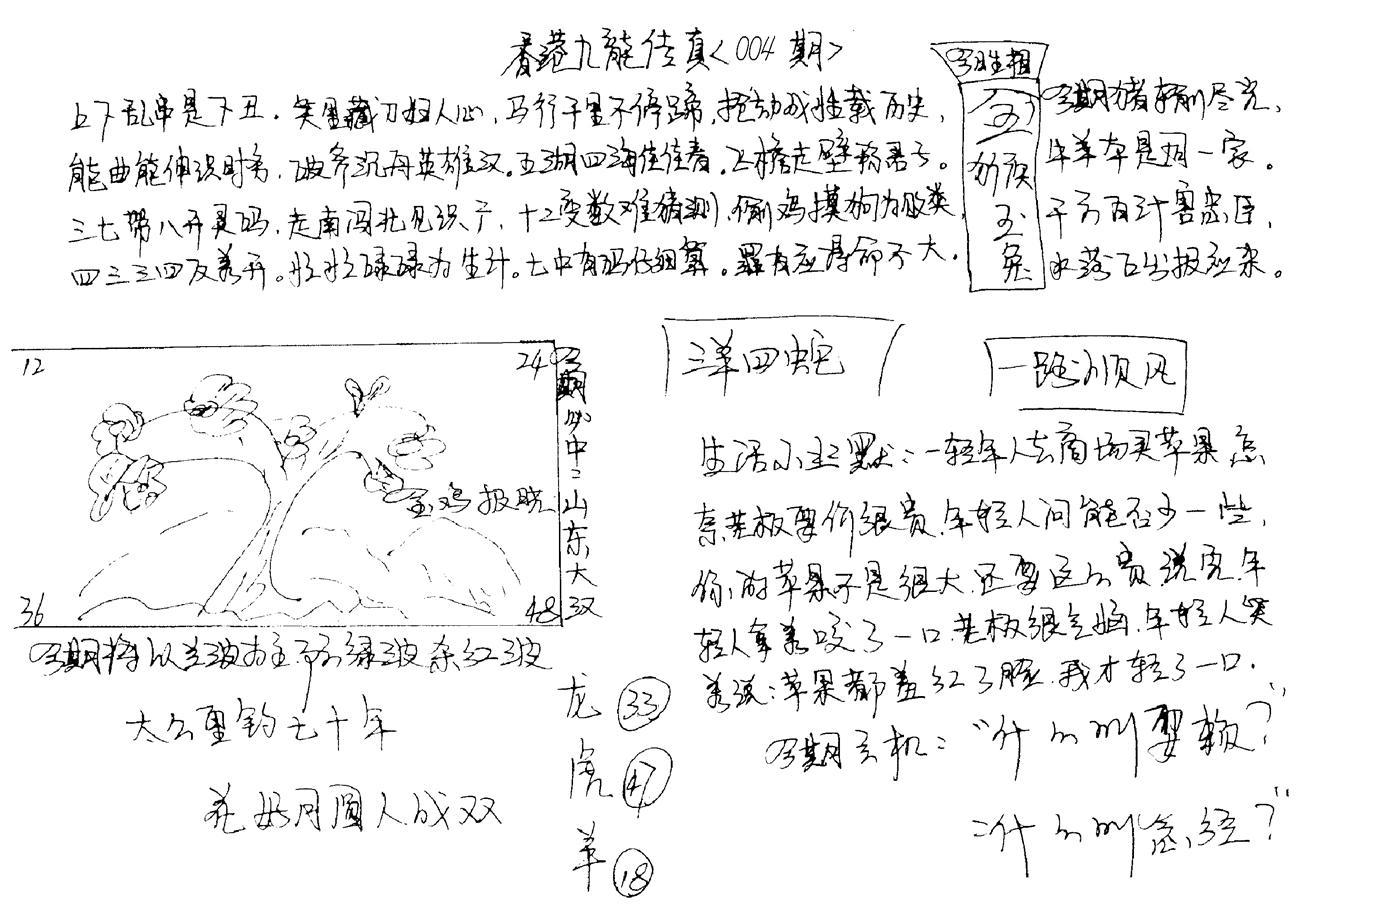 香港九龍传真<004期>
上下乱串是下丑．笑里藏刀妇人心，马行千里不停蹄， 载历史，
能曲能伸识时务，破斧沉舟英雄汉．五湖四海佳佳春．飞檐走壁 君子。
三七带八开灵码，走南闯北见识广，十二变数难猜测，偷鸡摸狗为败类，
四三三四反着开。忙忙碌碌为生计。七中有码仔细算。罪有应得命不大．
今期生肖相
金
猴
玉
兔
今期猪 尽完，
牛羊本是同一家。
千方百计害忠臣，
水落石出报应来。
12
24
36
48
金鸡报晓
今期必中：山东大汉
今期将以兰波为主 绿波杂红波
太公垂钓七十年
花好月圆人成双
龙 33
虎 47
羊 18
三羊四蛇
一路顺风
生活小幽默：一年轻人去商场买苹果，怎
奈老板要价很贵．年轻人问能否少一些，
你的苹果不是很大．还要这么贵．说完．年
轻人拿着咬了一口．老板很气恼．年轻人笑
着说：苹果都羞红了脸．我才轻了一口．
今期玄机：“什么叫耍赖？”
：什么叫念经？”